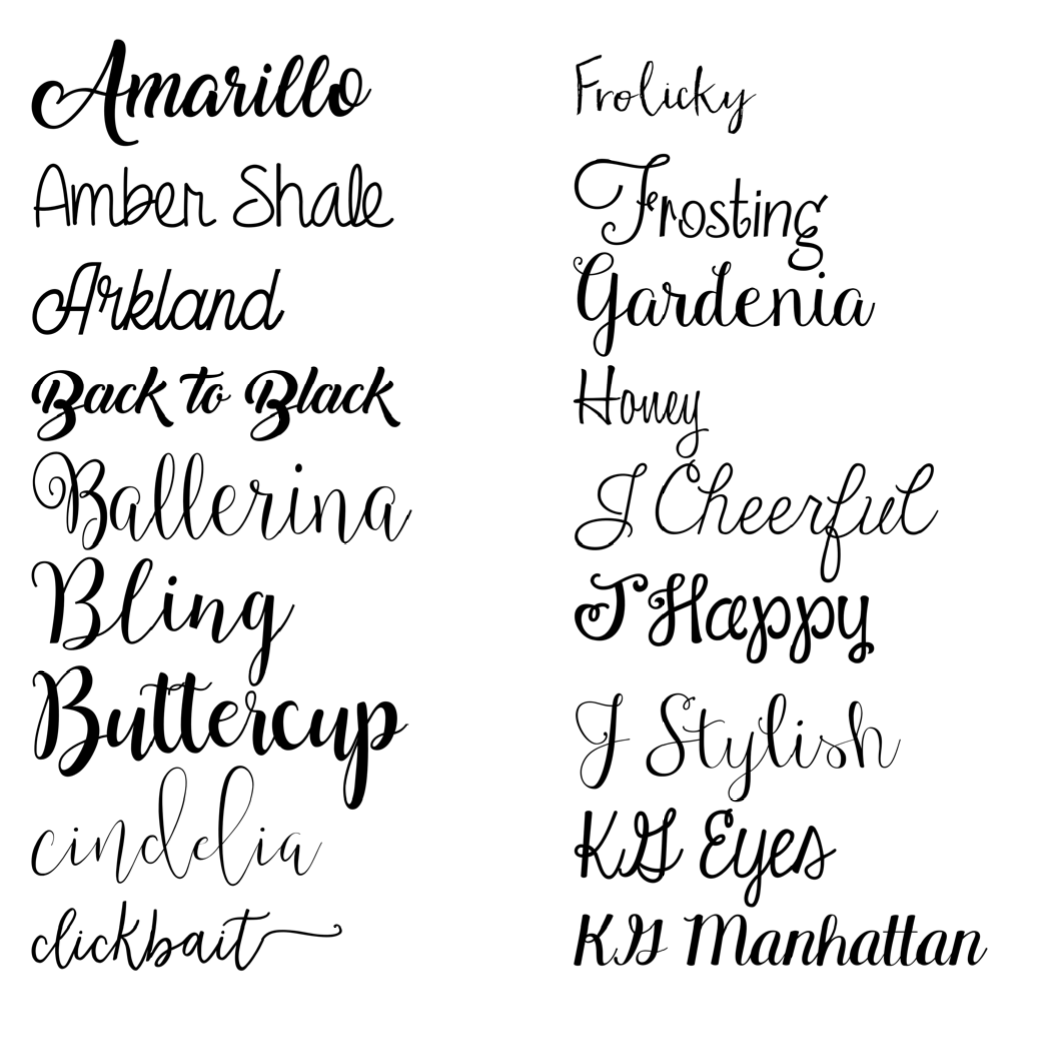 Amarillo
Amber Shale
Arkland
Back to Black
Ballerina
Bling
Buttercup
cindelia
clickbait
Frolicky
Frosting
Gardenia
Honey
J Cheerful
J Happy
J Stylish
KG Eyes
KG Manhattan